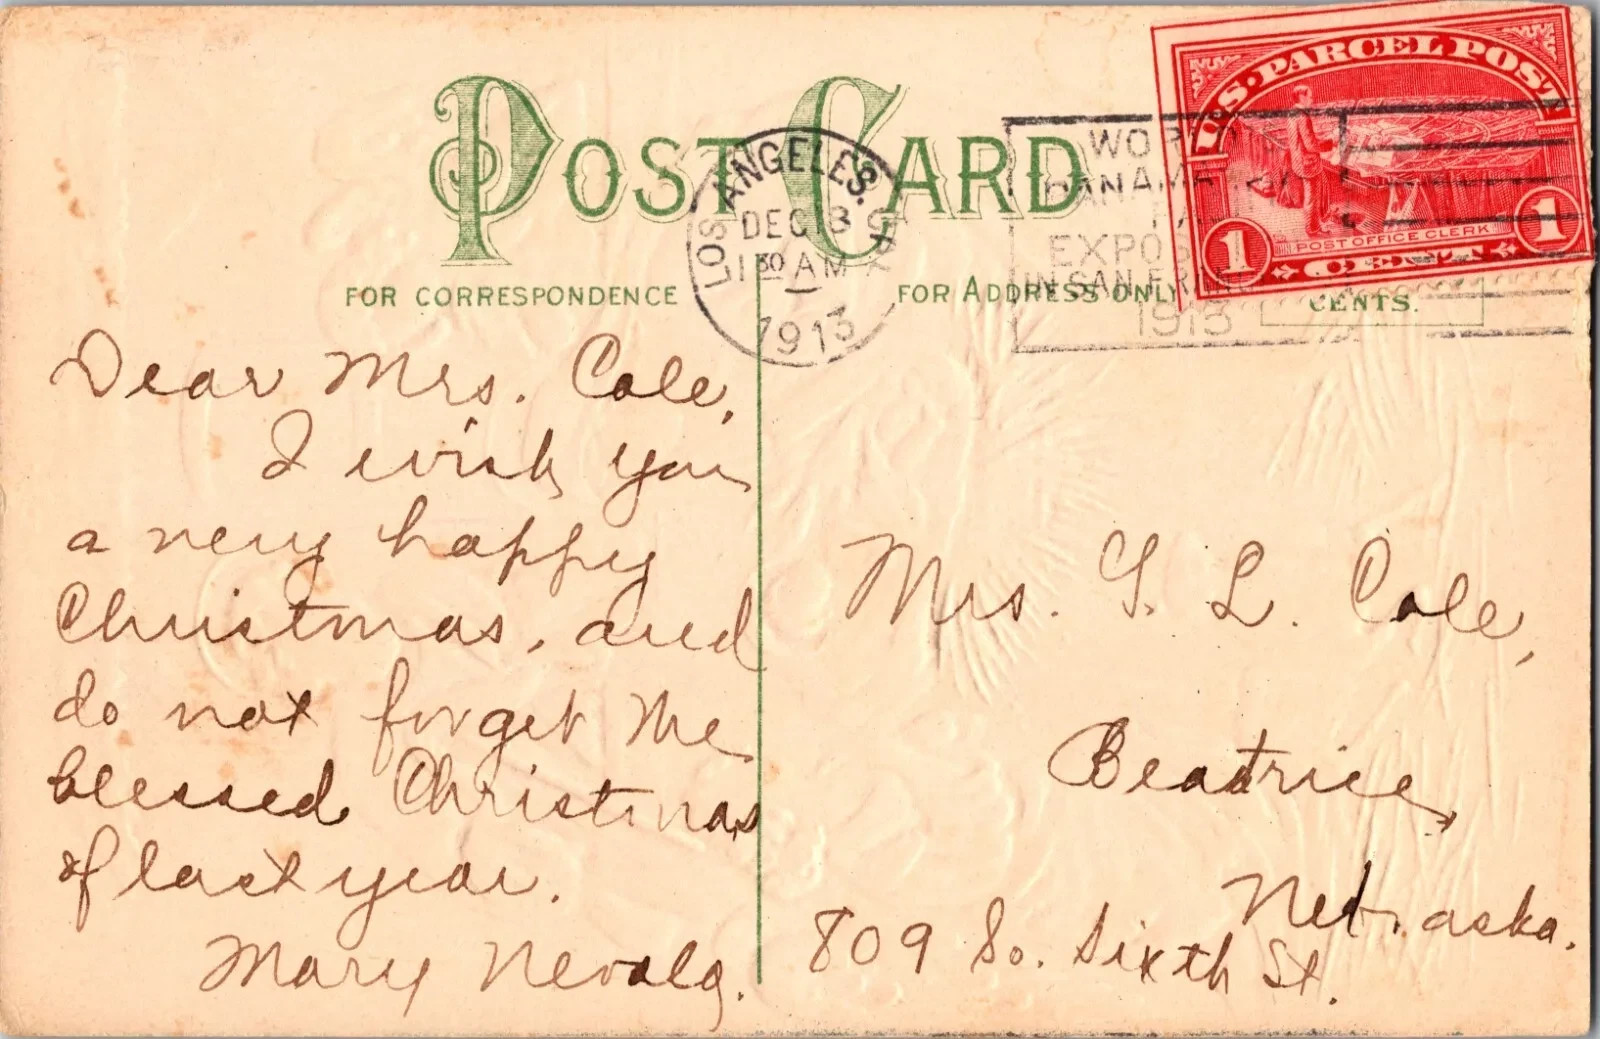 POST CARD
U.S. PARCEL POST
POST OFFICE CLERK
1 CENT 1
LOS ANGELES, CAL.
DEC 18
1 30 AM
1913
PANAMA
EXPOS
IN SAN FRANC
CENTS.
FOR CORRESPONDENCE
FOR ADDRESS ONLY
Dear Mrs. Cole,
I wish you
a very happy
Christmas, and
do not forget the
blessed Christmas
of last year.
Mary
Mrs. L. Cole,
Beatrice,
Nebraska.
809 So. Sixth St.